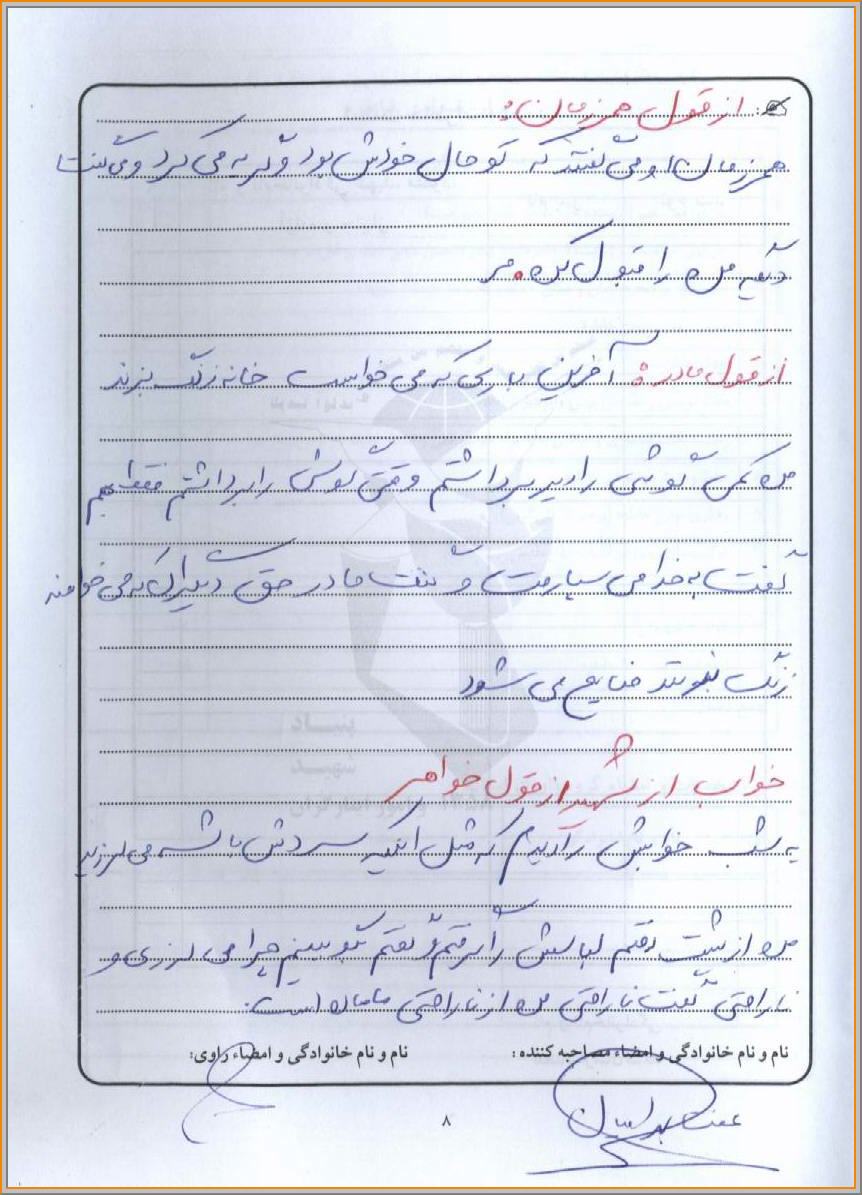 از قول همرزمان:
همرزمان او می گفتند که تو حال خودش بود و گریه می کرد و می گفت
دیگه من را قبول کن
از قول مادر: آخرین باری که می خواست خانه زنگ بزند
من کمی گوشی را دیر برداشتم وقتی گوشی را برداشتم فقط بهم
گفت به خدا می سپارمت و گفت مادر حق دیگران که می خواهند
زنگ بزنند ضایع می شود
خواب از شهید از قول خواهر
یه شب خوابش را دیدم که مثل اینکه سردش باشه می لرزید
من از پشت رفتم لباسش را گرفتم و گفتم بگو ببینم چرا می لرزی و
ناراحتی گفت ناراحتی من از ناراحتی مامان است.
نام و نام خانوادگی و امضاء مصاحبه کننده : نام و نام خانوادگی و امضاء راوی:
۸